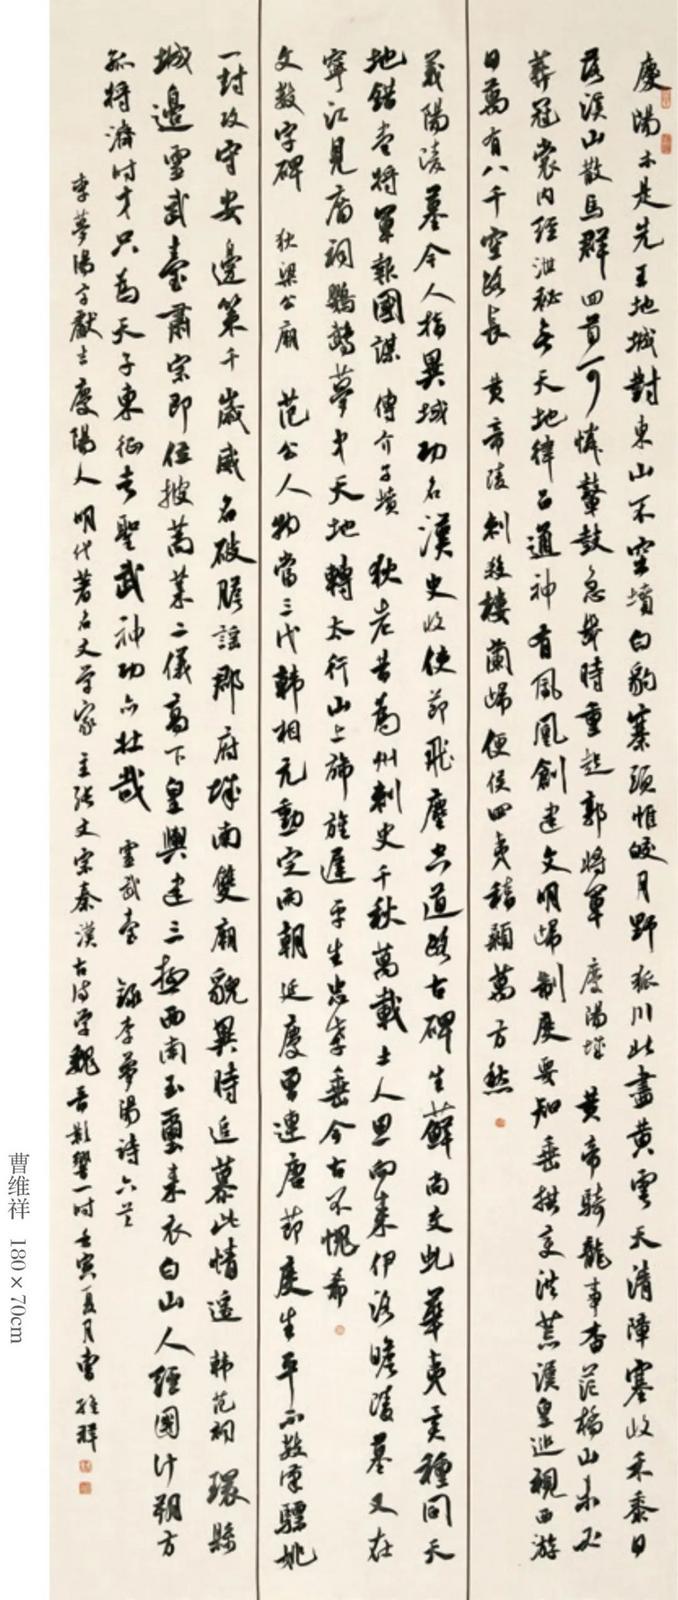 慶陽亦是先王地城對東山不窋墳白豹寨頭惟皎月野狐川北盡黃雲天清障塞收禾黍日
落溪山散馬群回首可憐鼙鼓急幾時重起郭將軍 慶陽城 黃帝騎龍事杳茫橋山未必
葬冠裳內經泄秘無天地律呂通神有鳳凰創建文明歸制度要知垂拱變洪荒漢皇巡視西游
日萬有八千空路長 黃帝陵 刺殺樓蘭歸便侯四夷稽顙萬方愁
義陽陵墓今人指異域功名漢史收使節飛塵出道路古碑生蘚尚交虬華夷貢種同天
地錯李將軍報國謀 傅介子墳 狄老昔為州刺史千秋萬載士人思向來伊洛瞻陵墓又在
寧江見廟祠鸚鵡夢中天地轉太行山上旆旌遲平生忠孝垂今古不愧希
文數字碑 狄梁公廟 范公人物當三代韓相元勳定兩朝延慶曾連唐節度生平不數漢驃姚
一封攻守安邊策千歲威名破膽謠郡府城南雙廟貌異時追慕此情遙 韓范祠 環縣
城邊雪武臺肅宗即位披蒿萊二儀高下皇輿建三極西南玉璽來衣白山人經國計朔方
孤將濟時才只為天子東征去聖武神功亦壯哉 靈武臺 錄李夢陽詩六首
李夢陽字獻吉慶陽人明代著名文學家主張文宗秦漢古詩學魏晉影響一時壬寅夏月曹維祥
曹维祥 180×70cm